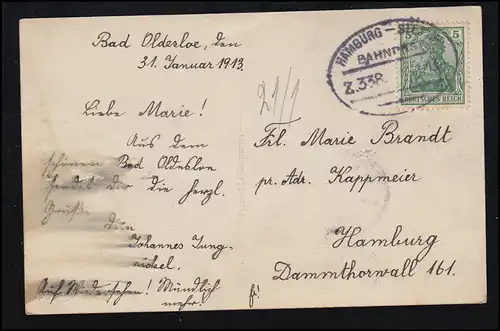 Bad Olderloe, den
31. Januar 1913.
Liebe Marie!
Aus dem
schönen Bad Oldesloe
sendet dir die herzl.
Grüße
dein
Johannes Jung-
nickel.
Auf Wiedersehen! Mündlich
mehr.
21/1
HAMBURG
BAHNPOST
Z.338
5 5
DEUTSCHES REICH
Frl. Marie Brandt
pr. Adr. Kappmeier
Hamburg
Dammthorwall 161.